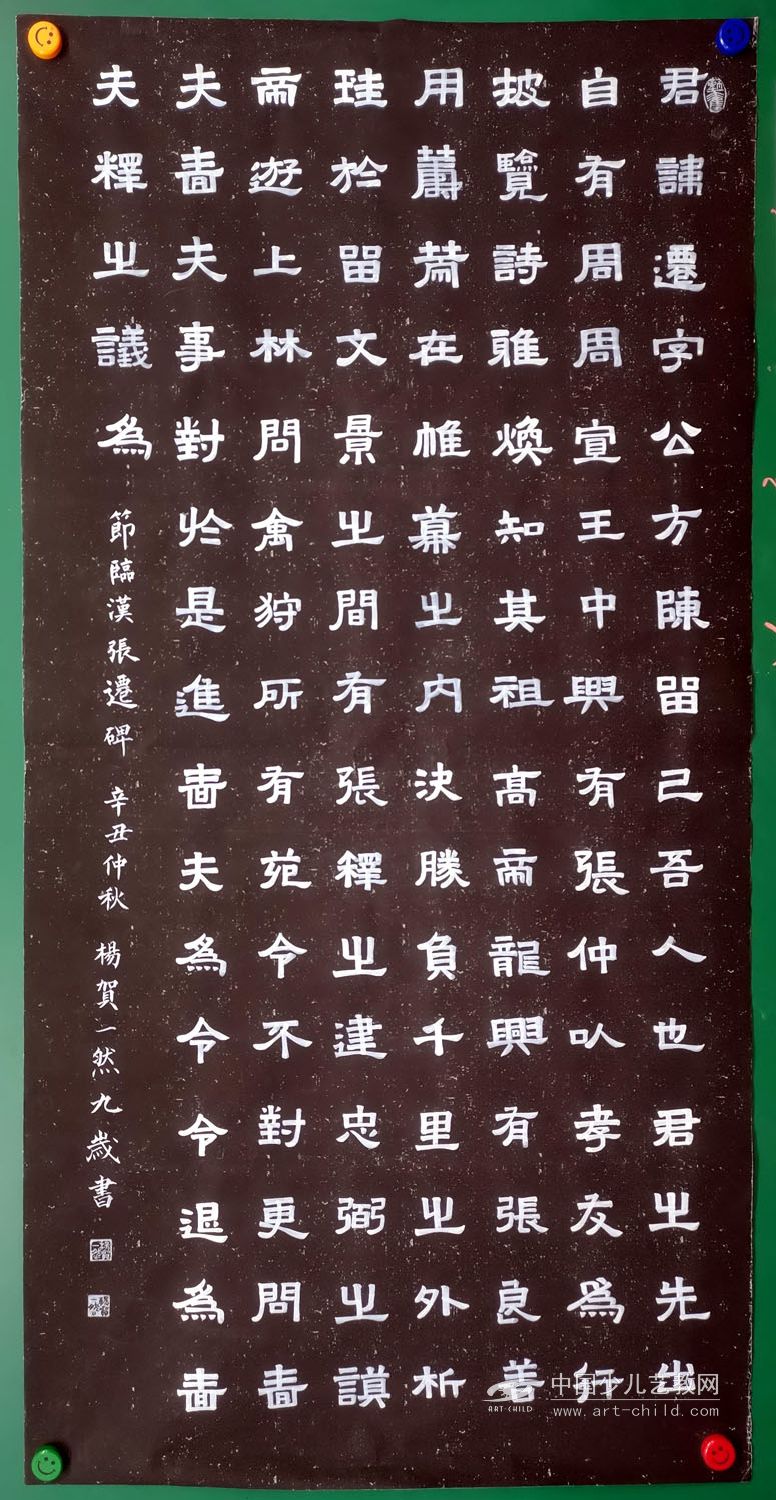 君諱遷字公方陳留己吾人也君之先出
自有周周宣王中興有張仲以孝友為行
披覽詩雅煥知其祖高帝龍興有張良善
用籌策在帷幕之内決勝負千里之外析
珪於留文景之間有張釋之建忠弼之謨
帝遊上林問禽狩所有苑令不對更問嗇
夫嗇夫事對於是進嗇夫為令令退為嗇
夫釋之議為
節臨漢張遷碑 辛丑仲秋 楊賀一然九歲書
中国少儿艺教网
ART-CHILD
www.art-child.com